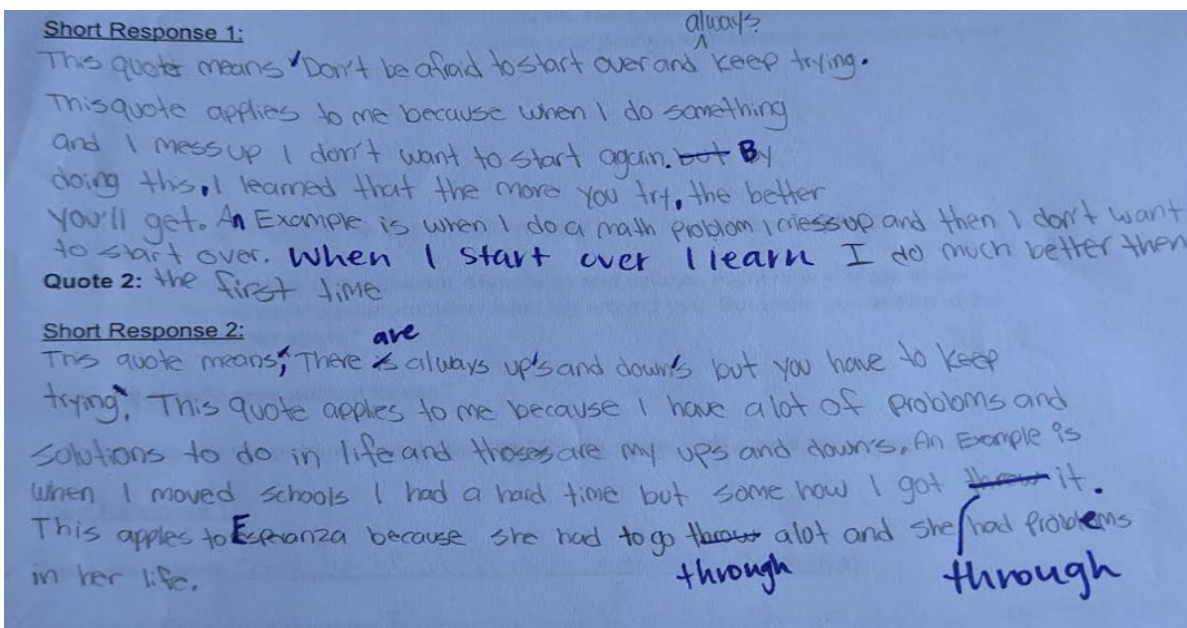 Short Response 1:
always
This quote means "Don't be afraid to start over and keep trying.
This quote applies to me because when I do something
and I mess up I don't want to start again. but By
doing this, I learned that the more you try, the better
you'll get. An Example is when I do a math problom I mess up and then I don't want
to start over. When I start over I learn I do much better then
Quote 2: the first time
Short Response 2:
are
This quote means, "There is always up's and down's but you have to keep
trying". This quote applies to me because I have a lot of probloms and
solutions to do in life and thoses are my ups and down's. An Example is
when I moved schools I had a hard time but some how I got throw it.
This apples to Esperanza because she had to go throw alot and she had problems
in her life.
through through